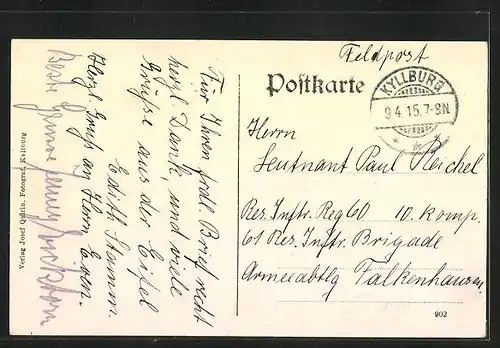 Feldpost
Postkarte
KYLLBURG
9.4.15.7-8N
Herrn
Leutnant Paul Reichel
Res. Inftr. Reg 60 10. Komp.
61 Res. Inftr. Brigade
Armeeabtlg Falkenhausen
902
Für Ihren frdl. Brief recht
herzl. Dank, und viele
Grüße aus der Eifel
Edith Stamm.
Herzl. Gruß an Herrn
Beste Grüsse
Verlag Josef Quirin, Fotograf, Kyllburg